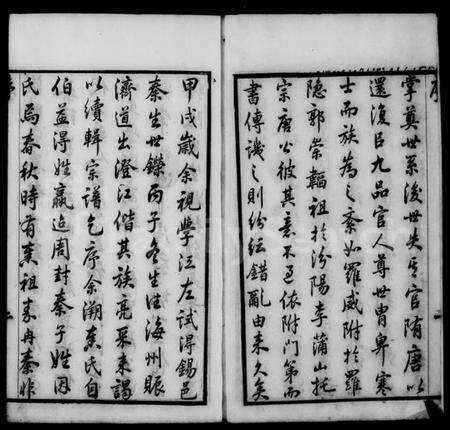 序
掌奠世系後世失其官隋唐以
還後臣九品官人尊世胄卑寒
士而族為之紊如羅威附於羅
隱郭崇韜祖於汾陽李蒲山托
宗唐公彼其意不過依附門第而
書傳譏之則紛紜錯亂由来久矣
甲戌歲余視學江左試得錫邑
秦生世鑅丙子冬生往海州賑
濟道出澄江偕其族亮采来謁
以續輯宗譜乞序余溯秦氏自
伯益得姓嬴迨周封秦子姓因
氏焉春秋時有秦祖秦冉秦非
序